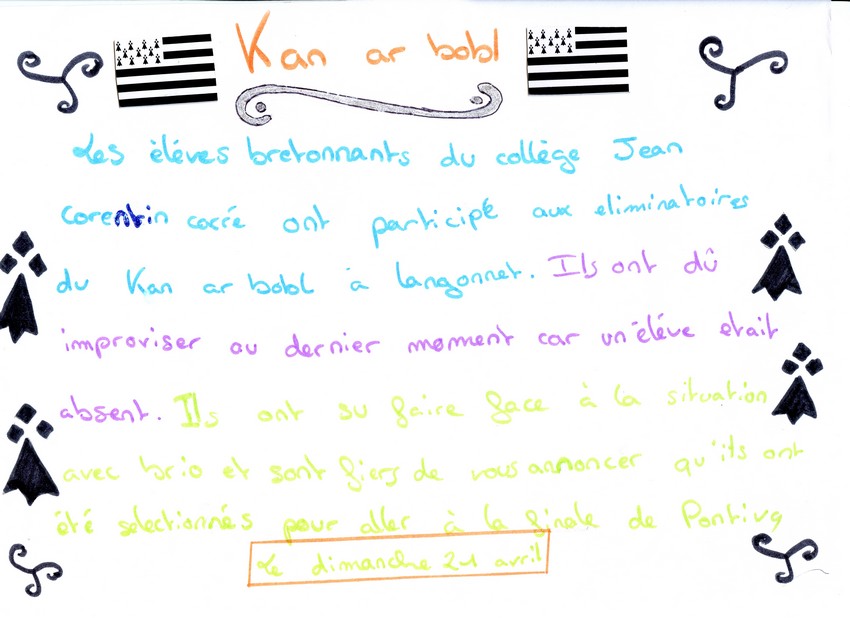 Kan ar bobl
Les élèves bretonnants du collège Jean
Corentin carré ont participé aux eliminatoires
du Kan ar bobl à langonnet. Ils ont dû
improviser au dernier moment car un élève etait
absent. Ils ont su faire face à la situation
avec brio et sont fiers de vous annoncer qu'ils ont
été selectionnés pour aller à la finale de Pontivy
Le dimanche 21 avril